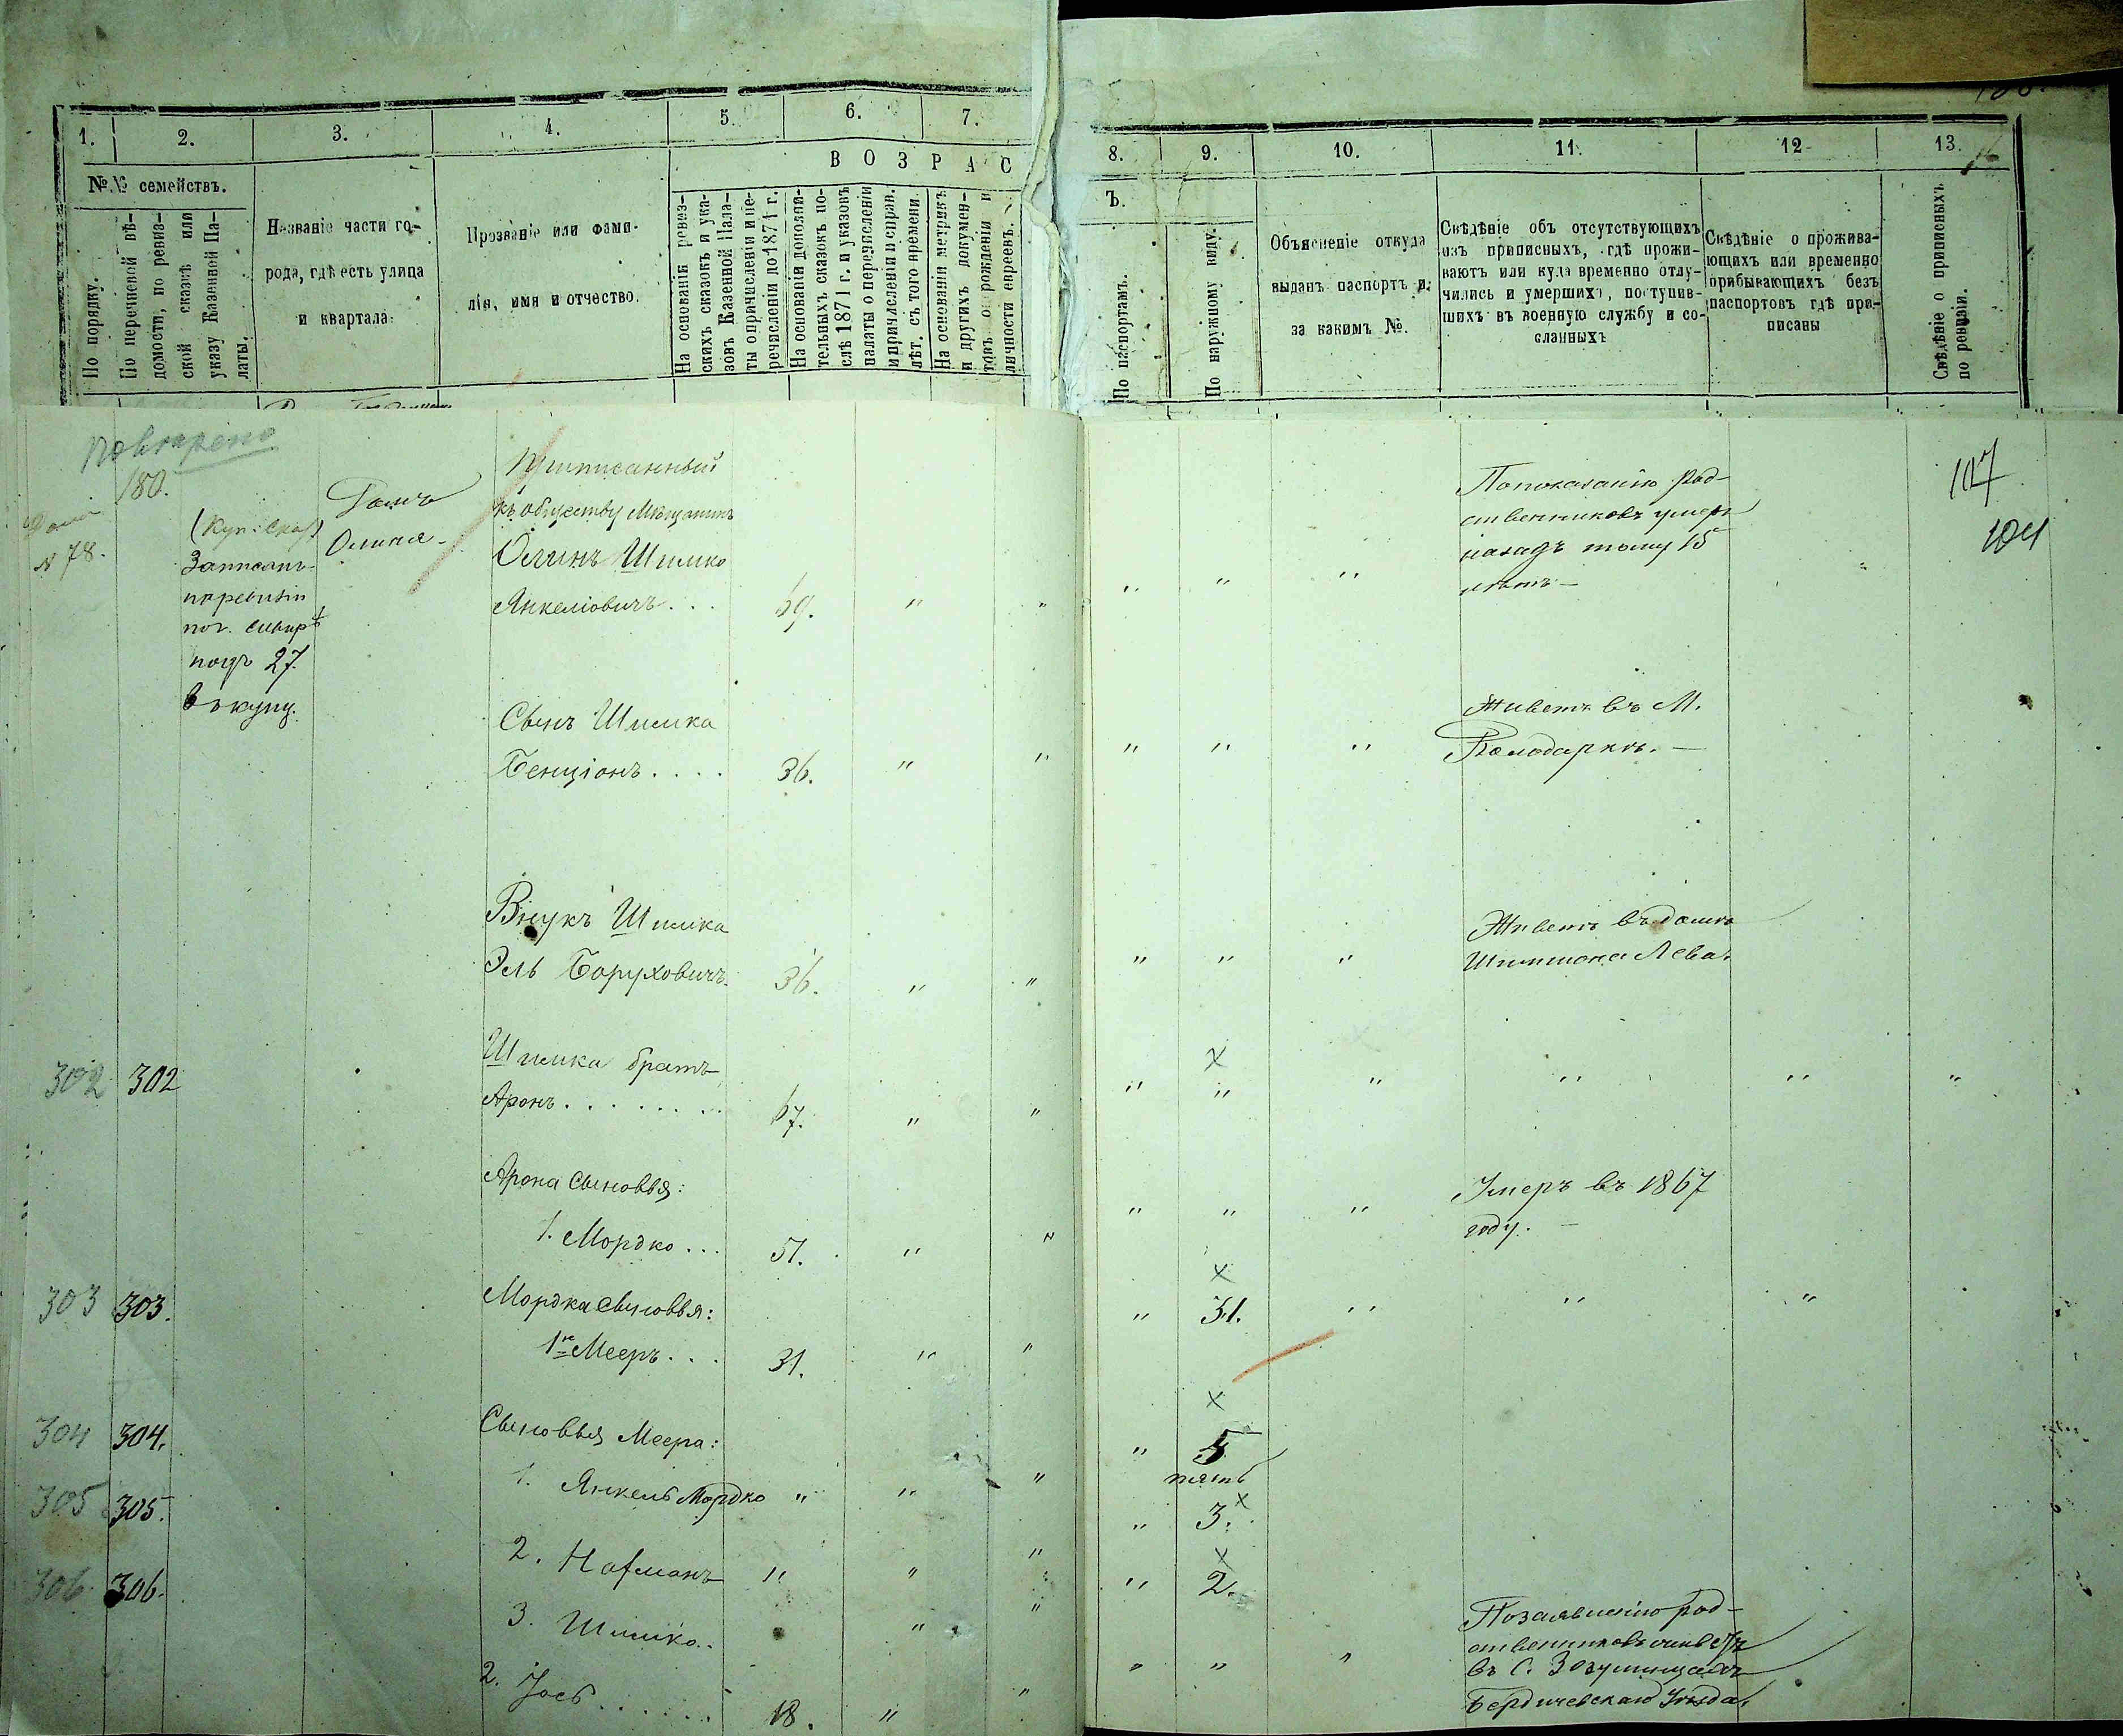 1.
2.
3.
4.
5.
6.
7.
8.
9.
10.
11.
12
13.
ВОЗРАС
Ъ.
№.№ семействъ.
По порядку.
По перечневой вѣ-
домости, по ревиз-
ской сказкѣ или
указу Казенной Па-
латы.
Названіе части го-
рода, гдѣ есть улица
и квартала.
Прозваніе или фами-
лія, имя и отчество.
На основаніи ревиз-
скихъ сказокъ и ука-
зовъ Казенной Пала-
ты о причисленіи и пе-
речисленіи до 1871 г.
На основаніи дополни-
тельныхъ сказокъ по-
слѣ 1871 г. и указовъ
палаты о перечисленіи
и причисленіи и справ.
лѣт. съ того времени.
На основаніи метрикъ
и другихъ докумен-
товъ о рожденіи и
личности евреевъ.
По паспортамъ.
По наружному виду.
Объясненіе откуда
выданъ паспортъ и
за какимъ №.
Свѣдѣніе объ отсутствующихъ
изъ приписныхъ, гдѣ прожи-
ваютъ или куда временно отлу-
чились и умершихъ, поступив-
шихъ въ военную службу и со-
сланныхъ
Свѣдѣніе о прожива-
ющихъ или временно
прибывающихъ безъ
паспортовъ гдѣ при-
писаны
Свѣдѣніе о приписныхъ
по ревизіи.
180.
N 78.
Записанъ
подъ 27.
въ купц.
Домъ
Олиня
Приписанный
къ обществу Мѣщанинъ
Олинъ Шимко
Янкеліовичъ . . . 69. " "
" " "
По показанію род-
ственниковъ умеръ
назадъ тому 15
лѣтъ —
107
104
Сынъ Шимка
Бенціонъ . . . . 36. " "
" " "
Живетъ въ М.
Володаркѣ. —
Внукъ Шимка
Эль Боруховичъ. 36. " "
" " "
Живетъ въ домѣ
Шимшона Лева.
302 302
Шимка братъ
Аронъ . . . . . . . 67. " "
" " " " " "
Арона Сыновья:
1. Мордко . . . 51. " "
" " "
Умеръ въ 1867
году. —
303 303.
Мордка Сыновья:
1й Мееръ . . . 31. " "
" 31. " " "
304 304.
Сыновья Меера:
1. Янкель Мордко " " "
" 5
пять
305 305.
2. Нафманъ " " "
" 3.
306 306.
3. Шимко. . " "
" 2.
2. Іось . . . . . . 18. " "
" " "
По заявленію род-
въ С. Зозулинцахъ
Бердичевскаго Уѣзда.